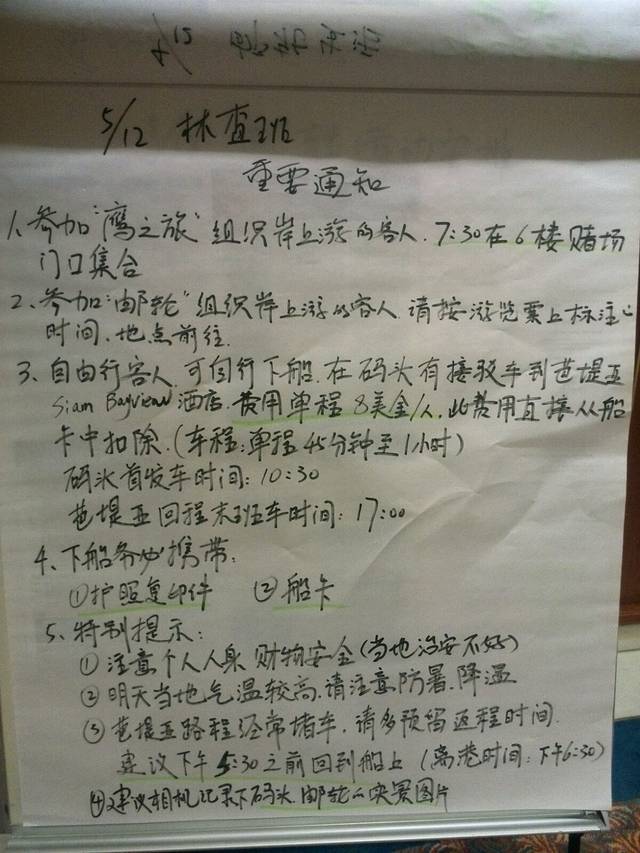 5/12 林查班
重要通知
1、参加"鹰之旅"组织岸上游的客人,7:30在6楼赌场
门口集合
2、参加"邮轮"组织岸上游的客人,请按游览票上标注的
时间、地点前往.
3、自由行客人,可自行下船.在码头有接驳车到芭堤亚
Siam Bayview酒店.费用单程8美金/人,此费用直接从船
卡中扣除.(车程:单程45分钟至1小时)
码头首发车时间:10:30
芭堤亚回程末班车时间:17:00
4、下船务必携带:
①护照复印件 ②船卡
5、特别提示:
①注意个人人身、财物安全(当地治安不好)
②明天当地气温较高,请注意防暑、降温
③芭堤亚路程经常堵车,请多预留返程时间.
建议下午5:30之前回到船上(离港时间:下午6:30)
④建议相机记录下码头、邮轮的实景图片